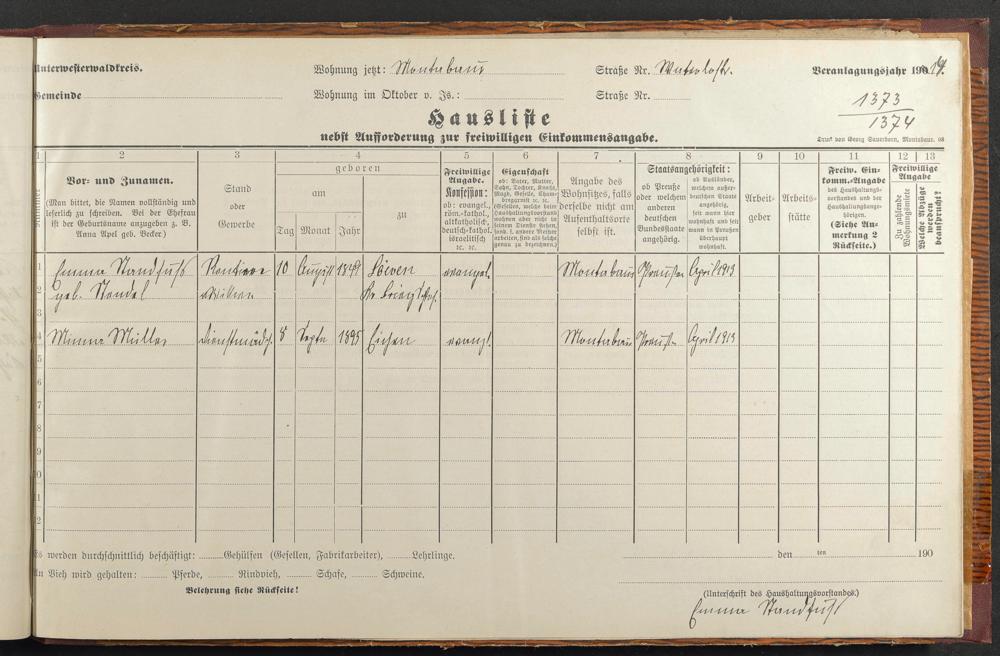 Unterwesterwaldkreis. Wohnung jetzt: Montabaur Straße Nr. Veranlagungsjahr 1914.
Gemeinde Wohnung im Oktober v. Js.: Straße Nr.
1373
1374
Hausliste
nebst Aufforderung zur freiwilligen Einkommensangabe.
Druck von Georg Sauerborn, Montabaur. 08
1 2 3 4 5 6 7 8 9 10 11 12 13
Nummer
Vor- und Zunamen.
(Man bittet, die Namen vollständig und
leserlich zu schreiben. Bei der Ehefrau
ist der Geburtsname anzugeben z. B.
Anna Apel geb. Becker.)
Stand
oder
Gewerbe
geboren
am
Tag Monat Jahr
zu
Freiwillige
Angabe.
Konfession:
ob: evangel.,
röm.-kathol.,
altkatholisch,
deutsch-kathol.
israelitisch
2c. 2c.
Eigenschaft
ob: Vater, Mutter,
Sohn, Tochter, Knecht,
Magd, Geselle, Cham-
bregarnist 2c. 2c.
(Gesellen, welche beim
Haushaltungsvorstand
wohnen aber nicht in
seinem Dienste stehen,
sond. f. andere Meister
arbeiten, sind als solche
genau zu bezeichnen.)
Angabe des
Wohnsitzes, falls
derselbe nicht am
Aufenthaltsorte
selbst ist.
Staatsangehörigkeit:
ob Preuße
oder welchem
anderen
deutschen
Bundesstaate
angehörig.
ob Ausländer,
welchem außer-
deutschen Staate
angehörig,
seit wann hier
wohnhaft und seit
wann in Preußen
überhaupt
wohnhaft.
Arbeit-
geber
Arbeits-
stätte
Freiw. Ein-
komm.-Angabe
des Haushaltungs-
vorstandes und der
Haushaltungsange-
hörigen.
(Siehe An-
merkung 2
Rückseite.)
Freiwillige
Angabe
Zu zahlende
Wohnungsmiete
Welche Abzüge
werden
beansprucht?
1 Emma Standfuß Rentiere 10 August Löwen evangel. Montabaur Preußen April 1913
2 geb. Stendel Witwe
3
4 Minna Müller Dienstmädch. 8 Septe 1895 Eichen evangl. Montabaur Preuß. April 1913
5
6
7
8
9
10
11
12
Es werden durchschnittlich beschäftigt: Gehülfen (Gesellen, Fabrikarbeiter), Lehrlinge.
den ten 190
An Vieh wird gehalten: Pferde, Rindvieh, Schafe, Schweine.
Belehrung siehe Rückseite!
(Unterschrift des Haushaltungsvorstandes.)
Emma Standfuß